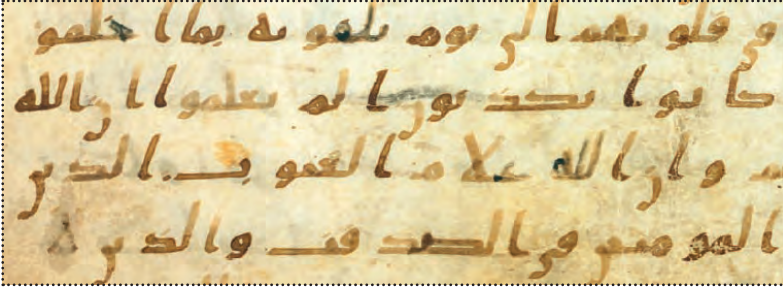 في قلوبهم الى يوم يلقونه بما اخلفو
كانوا يكذبون الم يعلموا ان الله
وان الله علم الغيوب الذين
المومنين في الصدقت والذين لا